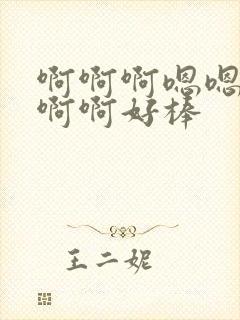 啊啊啊嗯嗯
啊啊好棒
王二妮